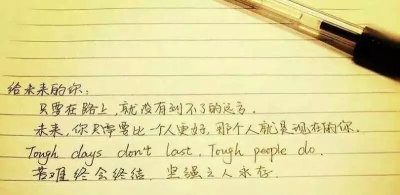 给未来的你:
只要在路上,就没有到不了的远方。
未来,你只需要比一个人更好,那个人就是现在的你。
Tough days don't last. Tough people do.
苦难终会终结,坚强之人永存.